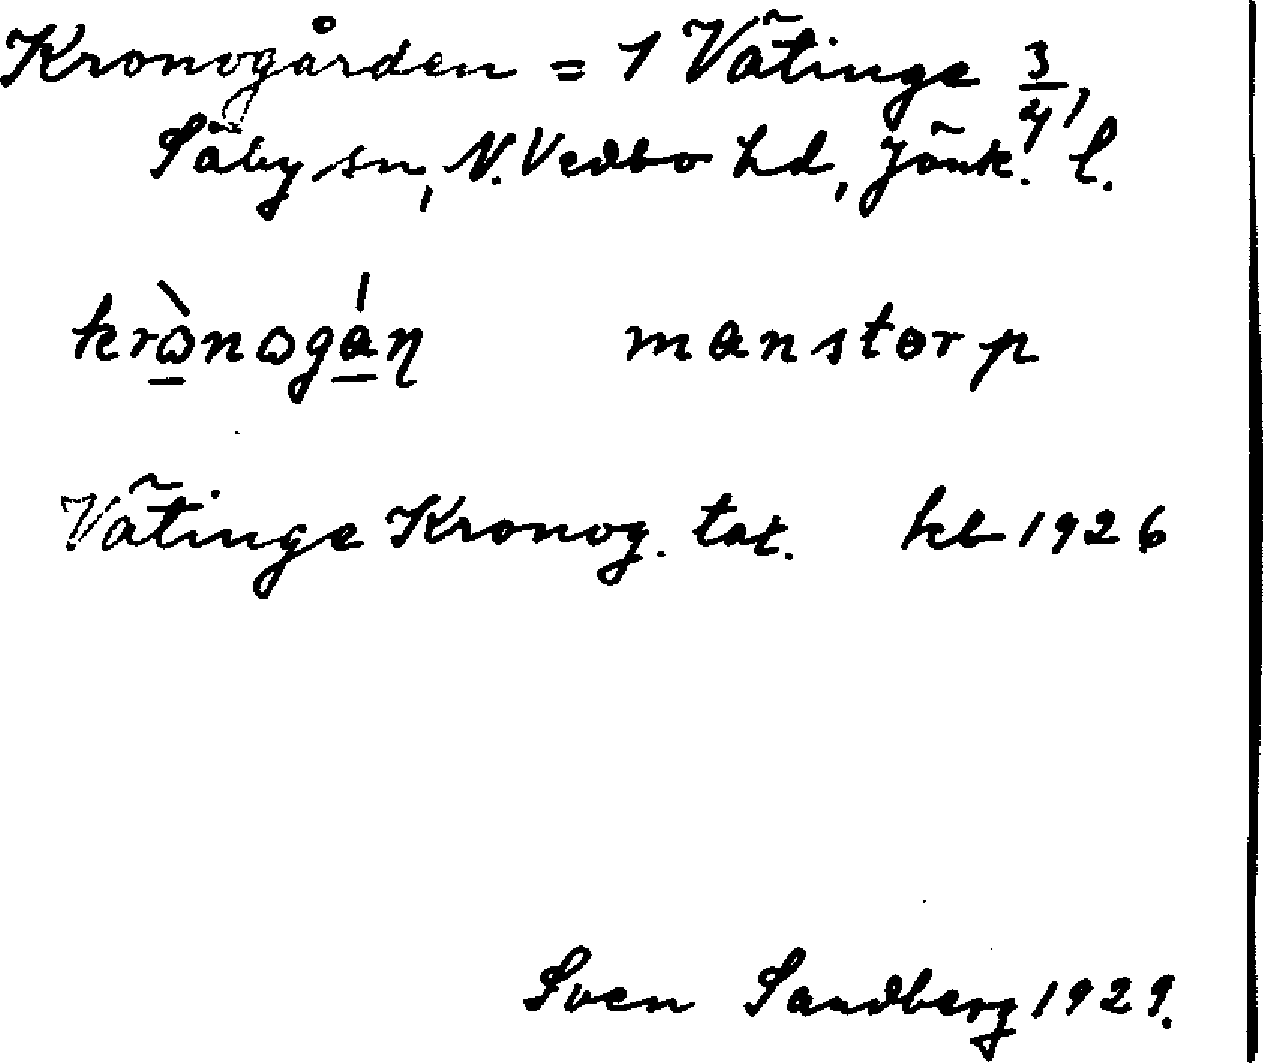 Kronogården = 1 Vätinge 3/4,
Säby sn, N. Vedbo hd, Jönk. l.
krònogán manstorp
Vätinge Kronog. tat. kb 1926
Sven Sandberg 1929.